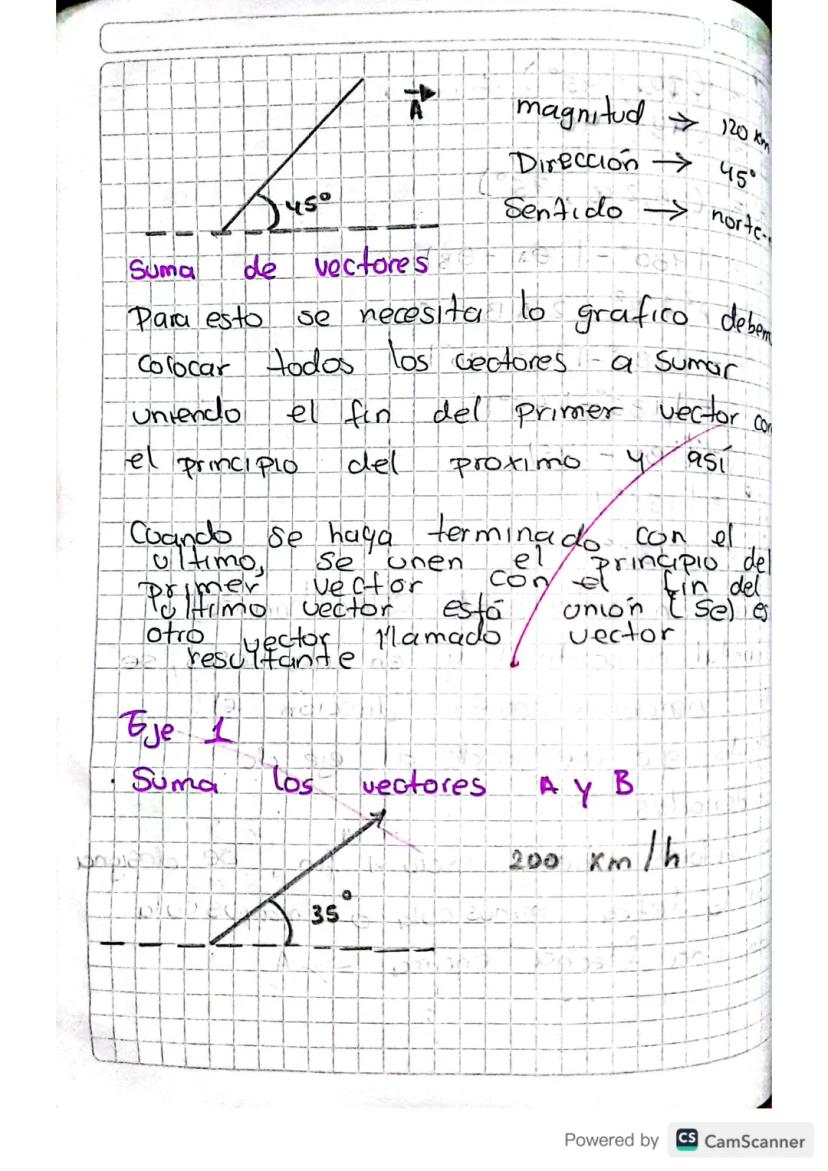 A
magnitud → 120 km
Dirección → 45°
Sentido → norte..
45°
Suma de vectores
Para esto se necesita lo grafico deben
colocar todos los vectores a sumar
uniendo el fin del primer vector con
el principio del proximo y así
Cuando se haya terminado con el
ultimo, se unen el principio del
primer vector con el fin del
ultimo vector está unión (se) es
otro vector llamado vector
resultante
Eje 1
· Suma los vectores A y B
200 km/h
35°
Powered by CS CamScanner